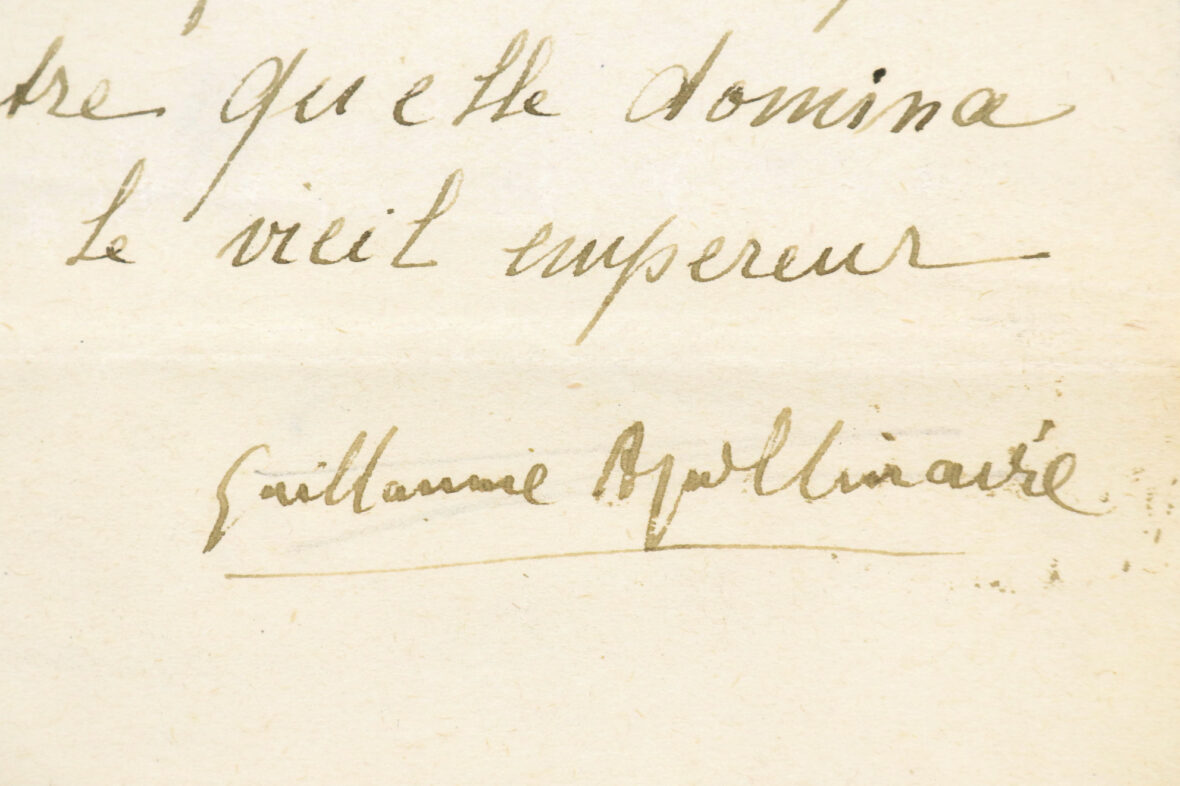 tre qu elle domina
le vieil empereur
Guillaume Apollinaire